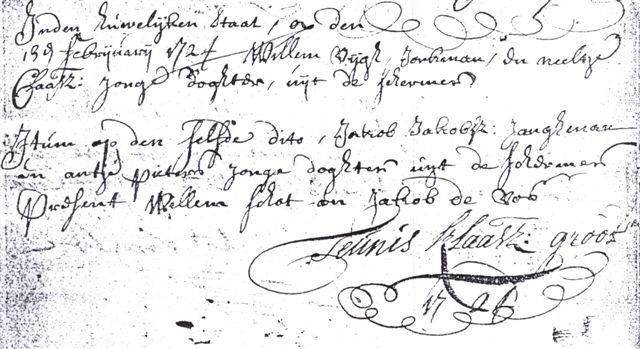 Inden huwelijken Staat, op den
13e februarij 172 Willem Vijgh, Jonkman, En neeltje
Claasz: Jonge doghter, uijt de schermer
Itum op den selfde dito, Jakob Jakobsz: Jangkman
en antje pieters jonge doghter uijt de schermer
Present Willem schot en Jakob de Vos
Teunis klaasz: groot
172